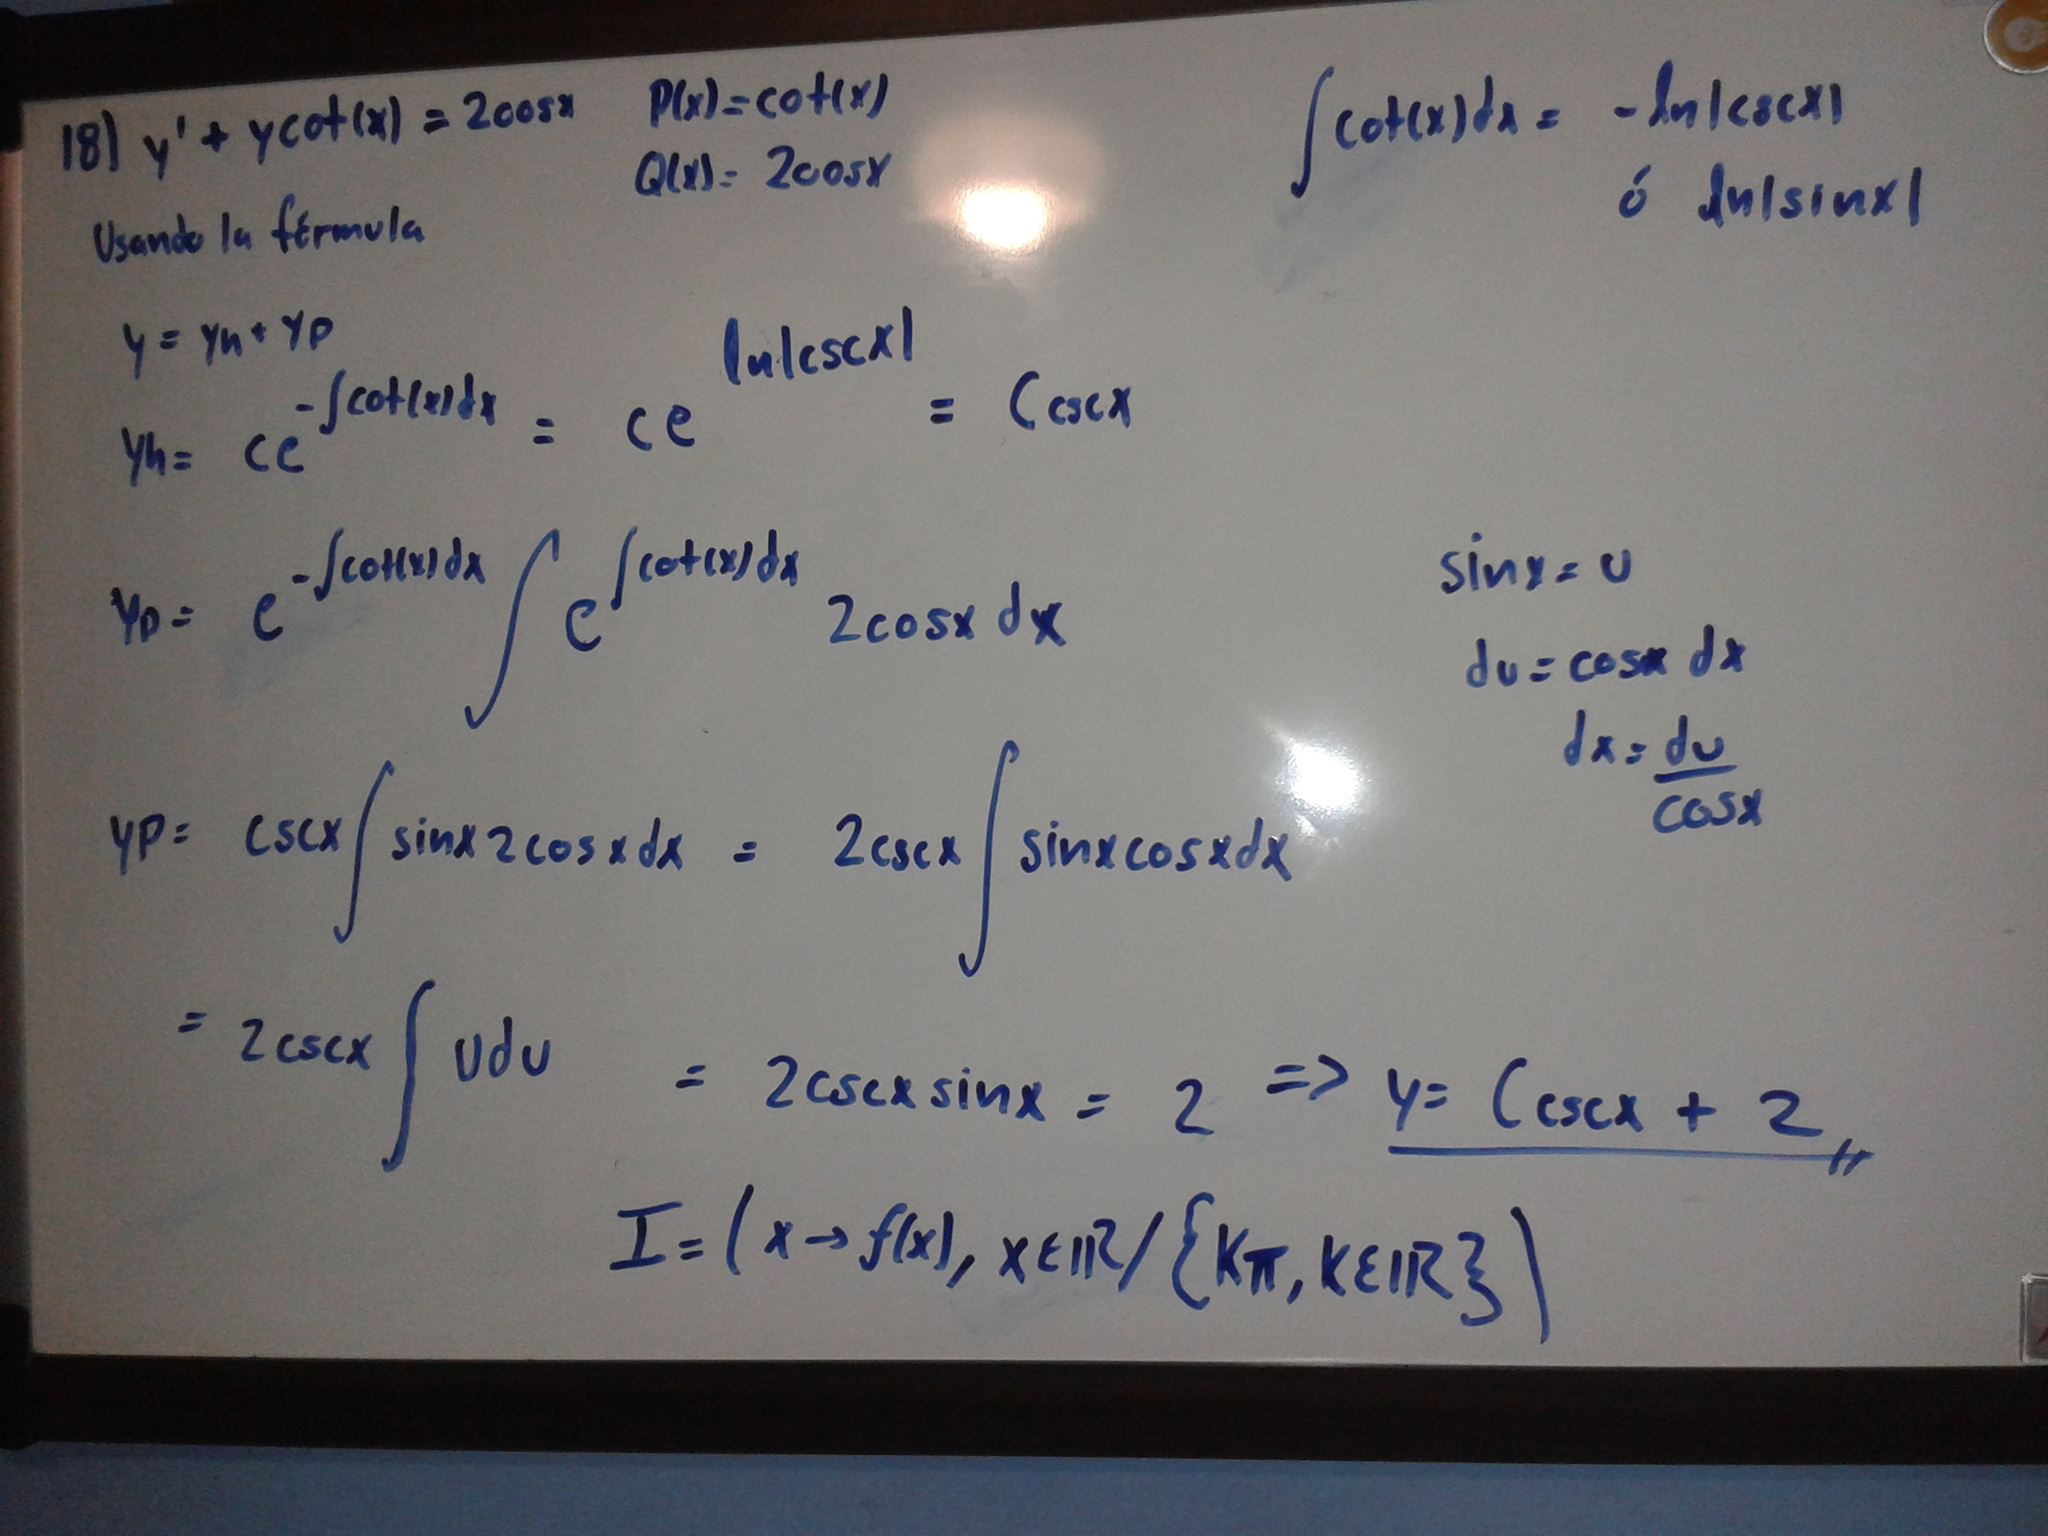 18) y' + ycot(x) = 2cosx P(x)=cot(x)
Q(x)= 2cosx
∫cot(x)dx = -ln|cscx|
ó ln|sinx|
Usando la fórmula
y = yh + yp
yh= ce^(-∫cot(x)dx) = ce^(ln|cscx|) = Ccscx
yp= e^(-∫cot(x)dx) ∫ e^(∫cot(x)dx) 2cosx dx
sinx = u
du = cosx dx
dx = du/cosx
yp= cscx ∫ sinx2cosxdx = 2cscx ∫ sinxcosxdx
= 2cscx ∫ udu = 2cscxsinx = 2 => y= Ccscx + 2
I = (x→f(x), x∈ℝ/{Kπ, K∈ℝ})